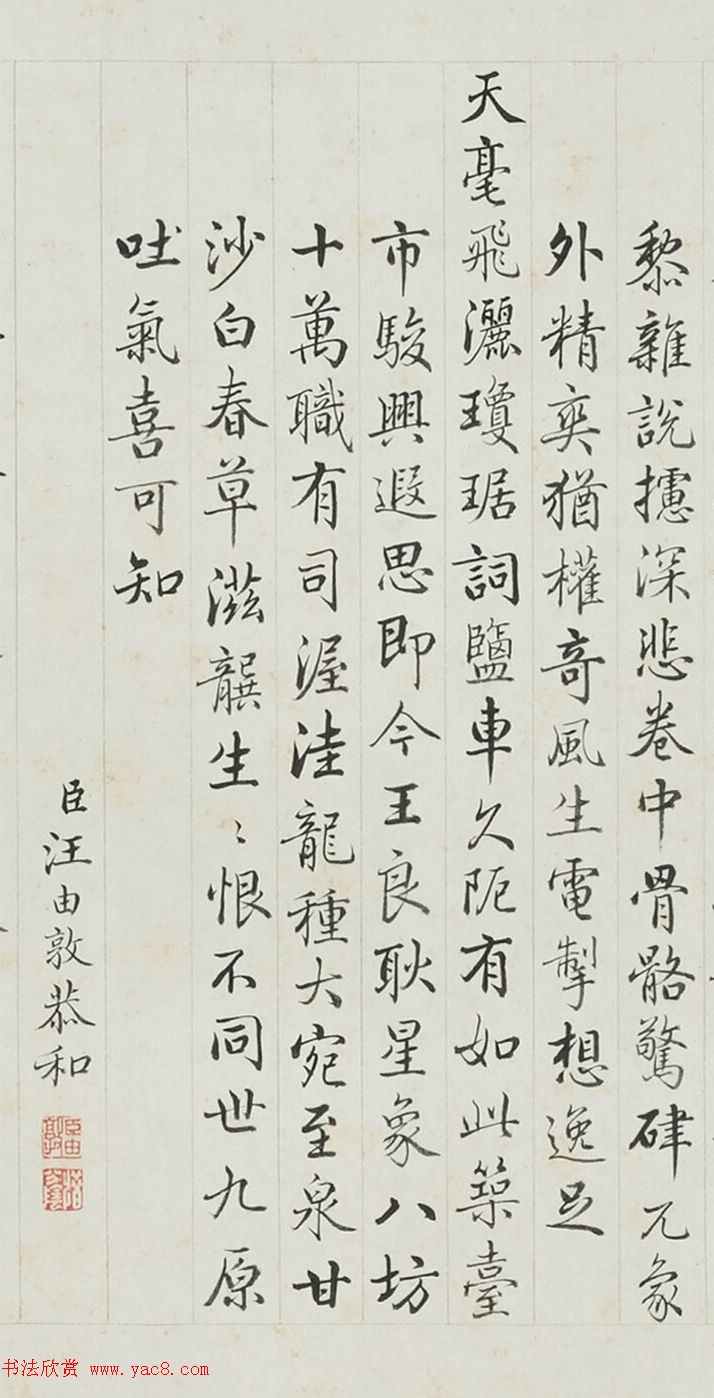 黎雜說攄深悲卷中骨骼驚硉兀象
外精爽猶權奇風生電掣想逸足
天毫飛灑瓊琚詞鹽車久阨有如此築臺
市駿興遐思即今王良耿星象八坊
十萬職有司渥洼龍種大宛至泉甘
沙白春草滋龔生〻恨不同世九原
吐氣喜可知
臣汪由敦恭和
书法欣赏 www.yac8.com